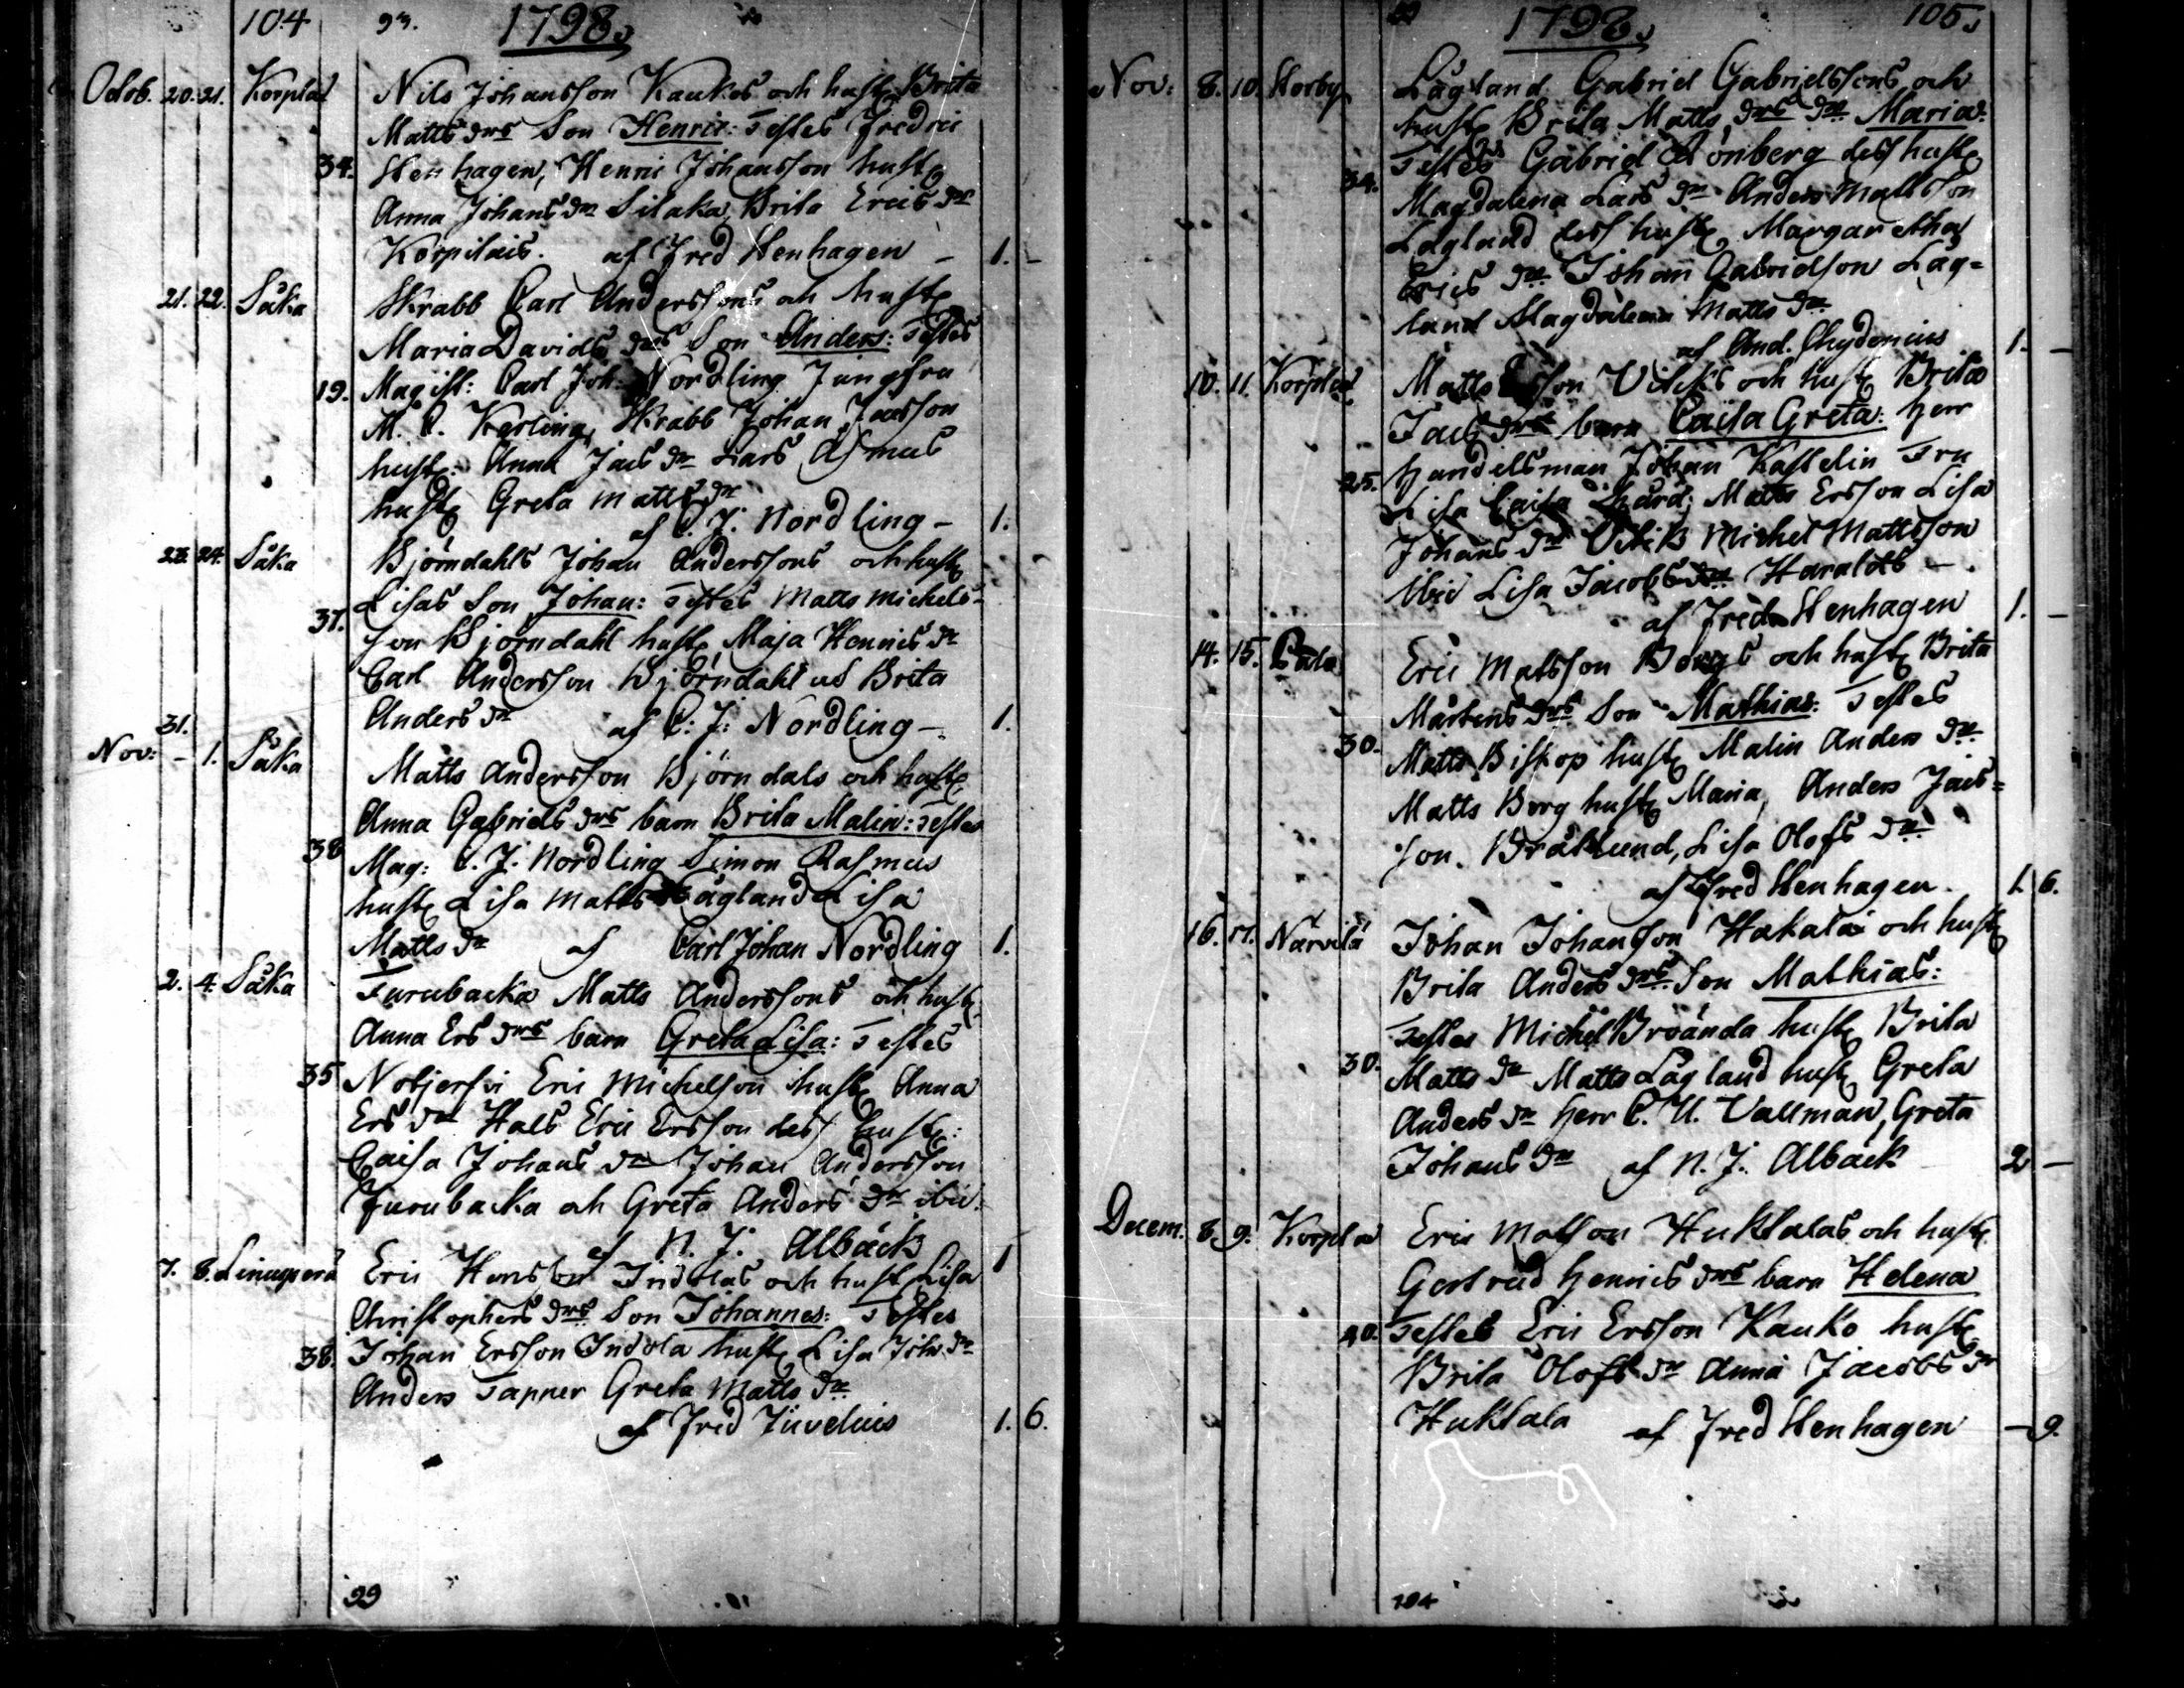 104 93. 1798.
Octob. 20. 21. Korplax Nils Johansson Kaukos och hust. Brita
Matts drs Son Henric: Testes Fredric
34. Stenhagen, Henric Johansson hust.
Anna Johans dr Silaka, Brita Erics dr
Korpilais. af Fred Stenhagen – 1. –
21. 22. Såka Skrabb Carl Anderssons och hust.
Maria Davids drs Son Anders: Testes
19. Magist: Carl Joh: Nordling Jungfru
M. C. Kerling, Skrabb Johan Jacsson
hust: Anna Jacs dr Lars Asmus
hust. Greta Matts dr
af C. J. Nordling – 1.
23. 24. Såka Björndahls Johan Anderssons och hust.
Lisas Son Johan: Testes Matts Michels-
37. son Björndahl hust. Maja Henrics dr
Carl Andersson Björndahl us Brita
Anders dr af C. J: Nordling – 1.
31.
Nov: – 1. Såka Matts Andersson Björndals och hust.
Anna Gabriels drs barn Brita Malin: Testes
38 Mag: C. J. Nordling Simon Rasmus
hust. Lisa Matts dr Lågland Lisa
Matts dr af Carl Johan Nordling 1.
2. 4. Såka Furubacka Matts Anderssons och hust.
Anna Ers drs barn Greta Lisa: Testes
35 Notjerfvi Eric Michelson hust. Anna
Ers dr Hals Eric Ersson dess hust:
Caisa Johans dr Johan Andersson
Furubacka och Greta Anders dr ibid.
af N. J. Alback 1
7. 8. Linusperä Eric Hansson Indolas och hust. Lisa
Christophers drs Son Johannes: Testes
38. Johan Ersson Indola hust. Lisa Joh. dr
Anders Tapner Greta Matts dr
af Fred Juvelius 1. 6.
99
1798. 105.
Nov: 8. 10. Storby Lågland Gabriel Gabrielssons och
hust. Brita Matts drs dr Maria:
Testes Gabriel Rönberg dess hust.
34. Magdalena Lars dr Anders Mattsson
Lågland dess hust. Margaretha
Erics dr Johan Gabrielson Låg=
land Magdalena Matts dr
af And. Chydenius 1. –
10. 11. Korplax Matts Ersson Vilcks och hust. Brita
Jacs drs barn Caisa Greta: Herr
25. Handelsman Johan Kastelin Fru
Lisa Caisa Matts Ersson Lisa
Johans dr Vilcks Michel Mattsson
ibid Lisa Jacobs dr Haralds –
af Fred Stenhagen 1. –
14. 15. Eric Matsson Borgs och hust. Brita
Mårtens drs Son Mathias: Testes
30. Matts Biskop hust. Malin Anders dr
Matts Borg hust. Maria, Anders Jacs=
son. Bråklund, Lisa Olofs dr
af Fred Stenhagen. 1. 6.
16. 17. Närvilä Johan Johansson Hakala och hust.
Brita Anders drs Son Mathias:
Testes Michel Broända hust. Brita
30. Matts dr Matts Lågland hust. Greta
Anders dr Herr C. U. Vallman, Greta
Johans dr af N. J. Alback 2 –
Decem. 8. 9. Korplax Eric Matson Huktalas och hust.
Gertrud Henrics drs barn Helena
40. Testes Eric Ersson Kauko hust.
Brita Olofs dr Anna Jacobs dr
Huktala af Fred Stenhagen – 9.
104